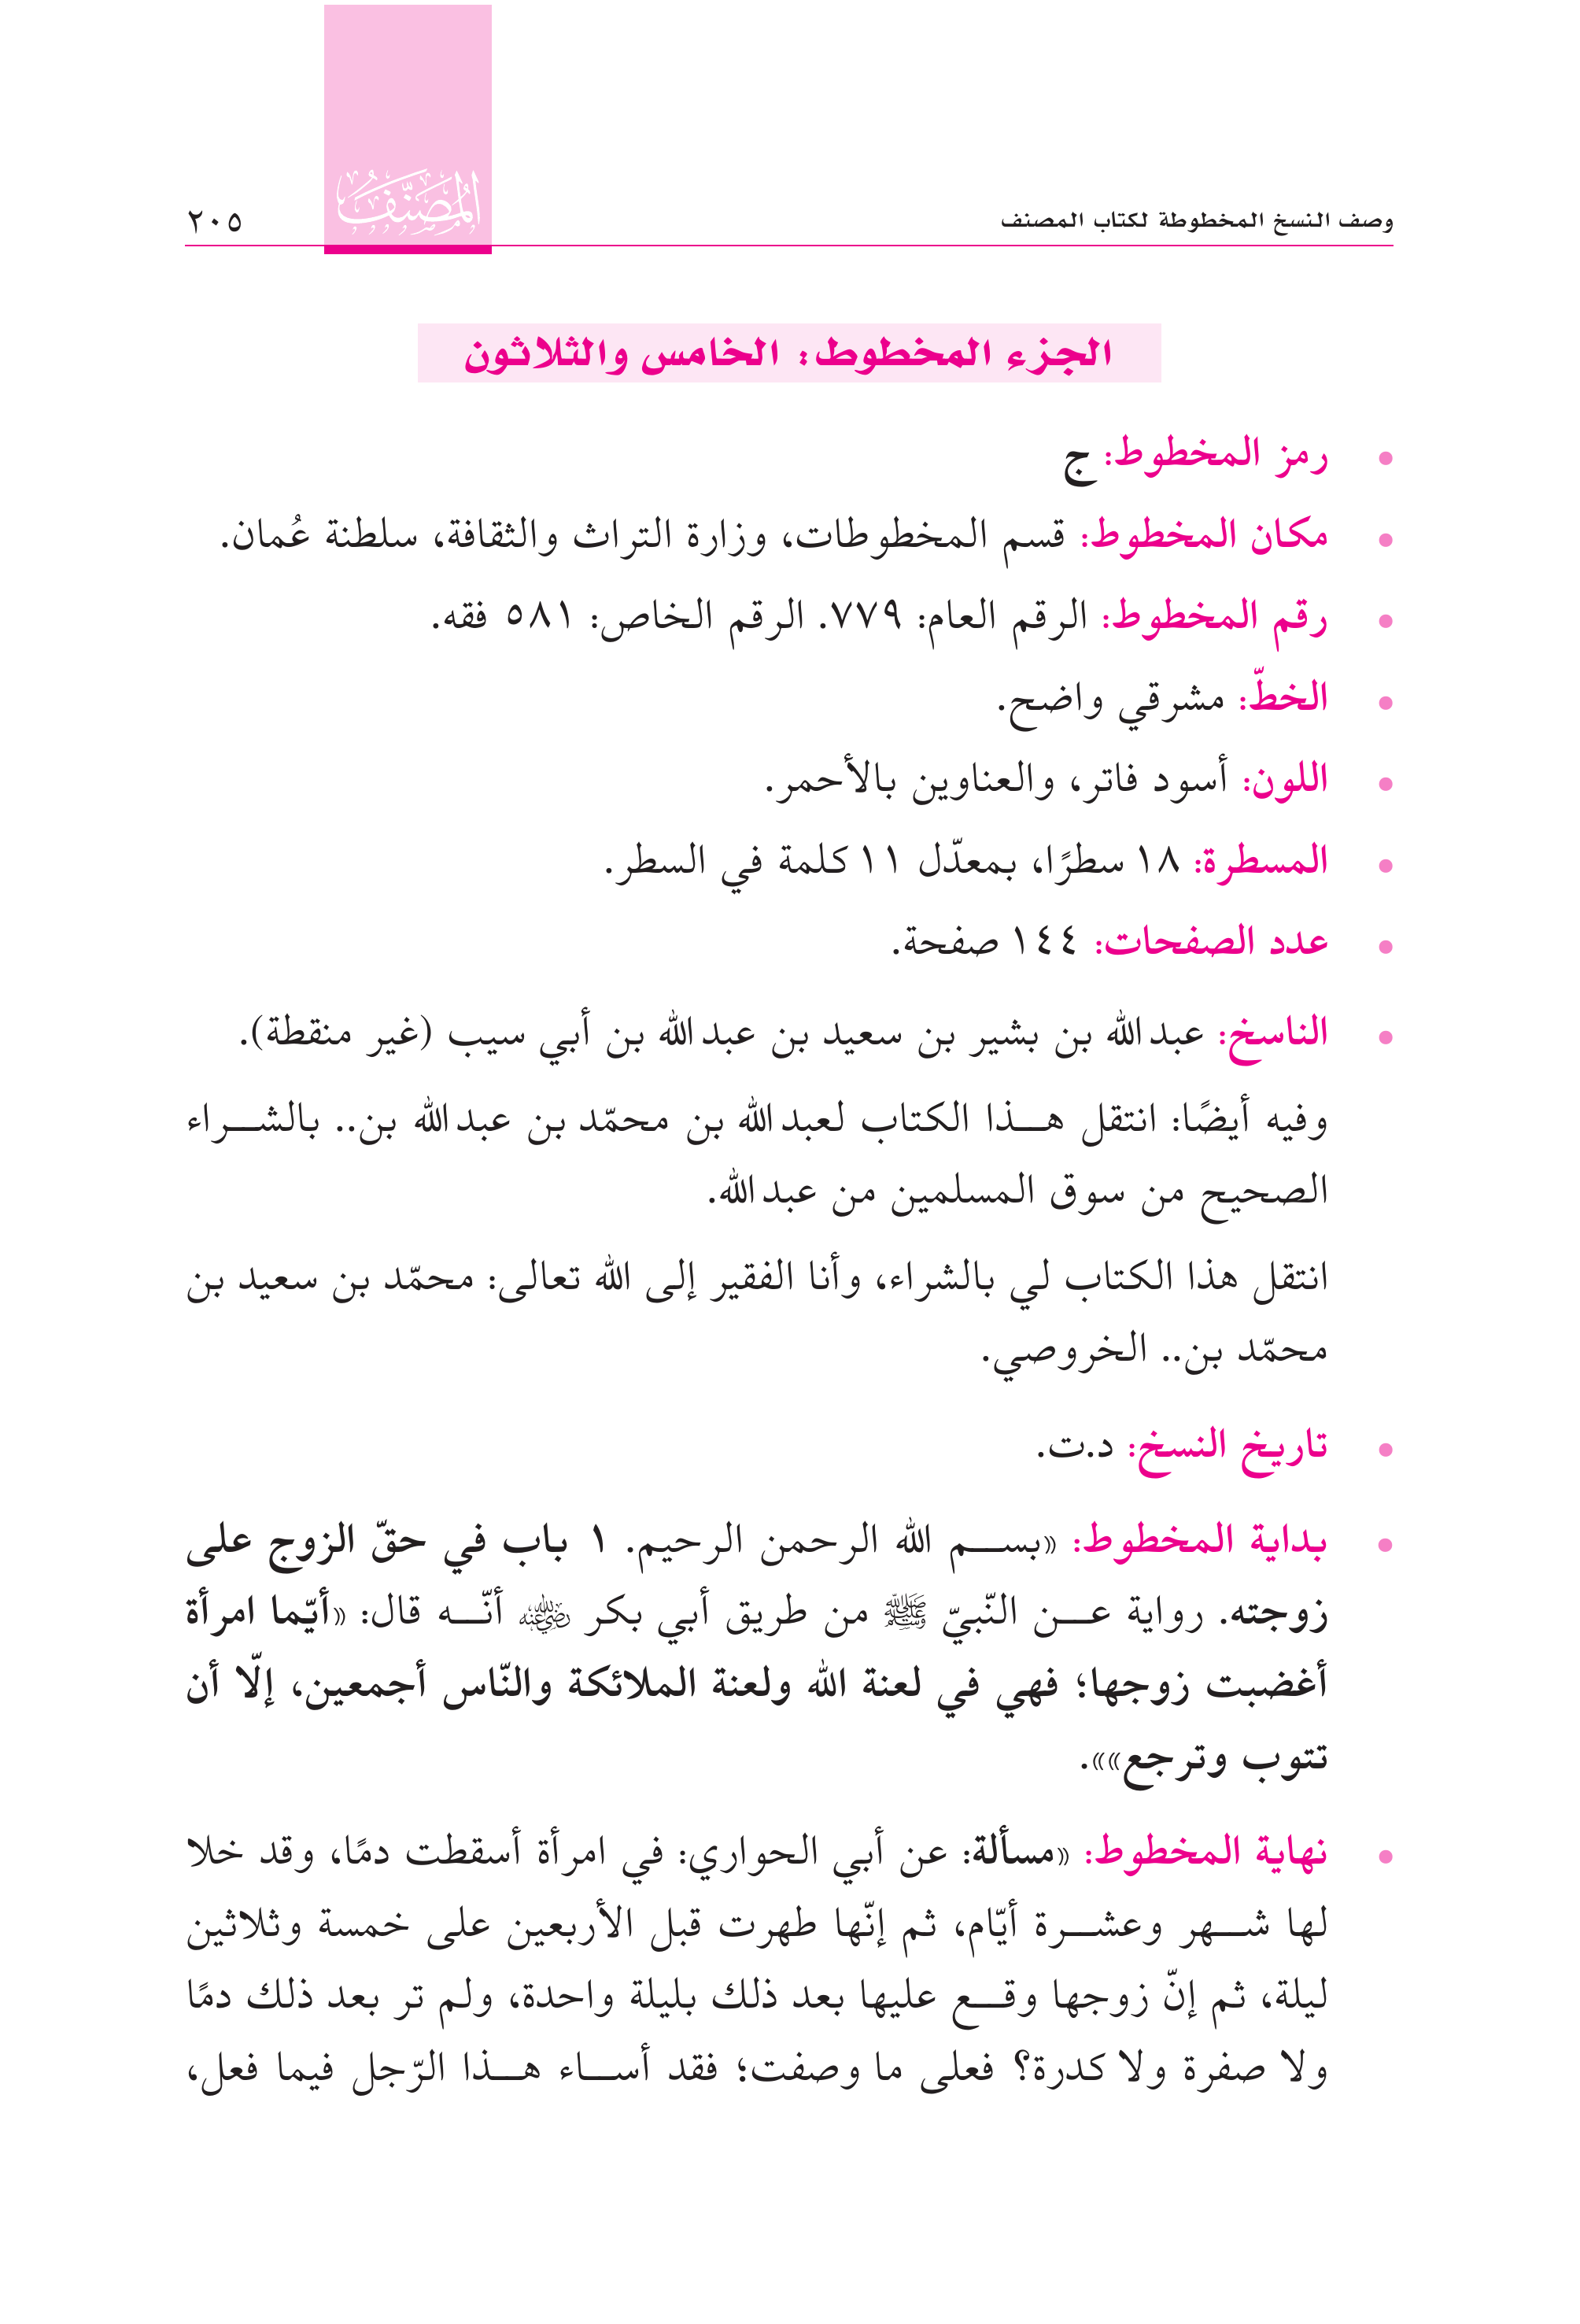 وصف النسخ المخطوطة لكتاب المصنف
المُصَنَّف
٢٠٥
الجزء المخطوط: الخامس والثلاثون
• رمز المخطوط: ج
• مكان المخطوط: قسم المخطوطات، وزارة التراث والثقافة، سلطنة عُمان.
• رقم المخطوط: الرقم العام: ٧٧٩. الرقم الخاص: ٥٨١ فقه.
• الخطّ: مشرقي واضح.
• اللون: أسود فاتر، والعناوين بالأحمر.
• المسطرة: ١٨ سطرًا، بمعدّل ١١ كلمة في السطر.
• عدد الصفحات: ١٤٤ صفحة.
• الناسخ: عبدالله بن بشير بن سعيد بن عبدالله بن أبي سيب (غير منقطة).
وفيه أيضًا: انتقل هـذا الكتاب لعبدالله بن محمّد بن عبدالله بن.. بالشـراء
الصحيح من سوق المسلمين من عبدالله.
انتقل هذا الكتاب لي بالشراء، وأنا الفقير إلى الله تعالى: محمّد بن سعيد بن
محمّد بن.. الخروصي.
• تاريخ النسخ: د.ت.
• بداية المخطوط: «بسـم الله الرحمن الرحيم. ١ باب في حقّ الزوج على
زوجته. رواية عـن النّبيّ ﷺ من طريق أبي بكر رضي الله عنه أنّـه قال: «أيّما امرأة
أغضبت زوجها؛ فهي في لعنة الله ولعنة الملائكة والنّاس أجمعين، إلّا أن
تتوب وترجع»».
• نهاية المخطوط: «مسألة: عن أبي الحواري: في امرأة أسقطت دمًا، وقد خلا
لها شـهر وعشـرة أيّام، ثم إنّها طهرت قبل الأربعين على خمسة وثلاثين
ليلة، ثم إنّ زوجها وقـع عليها بعد ذلك بليلة واحدة، ولم تر بعد ذلك دمًا
ولا صفرة ولا كدرة؟ فعلى ما وصفت؛ فقد أسـاء هـذا الرّجل فيما فعل،